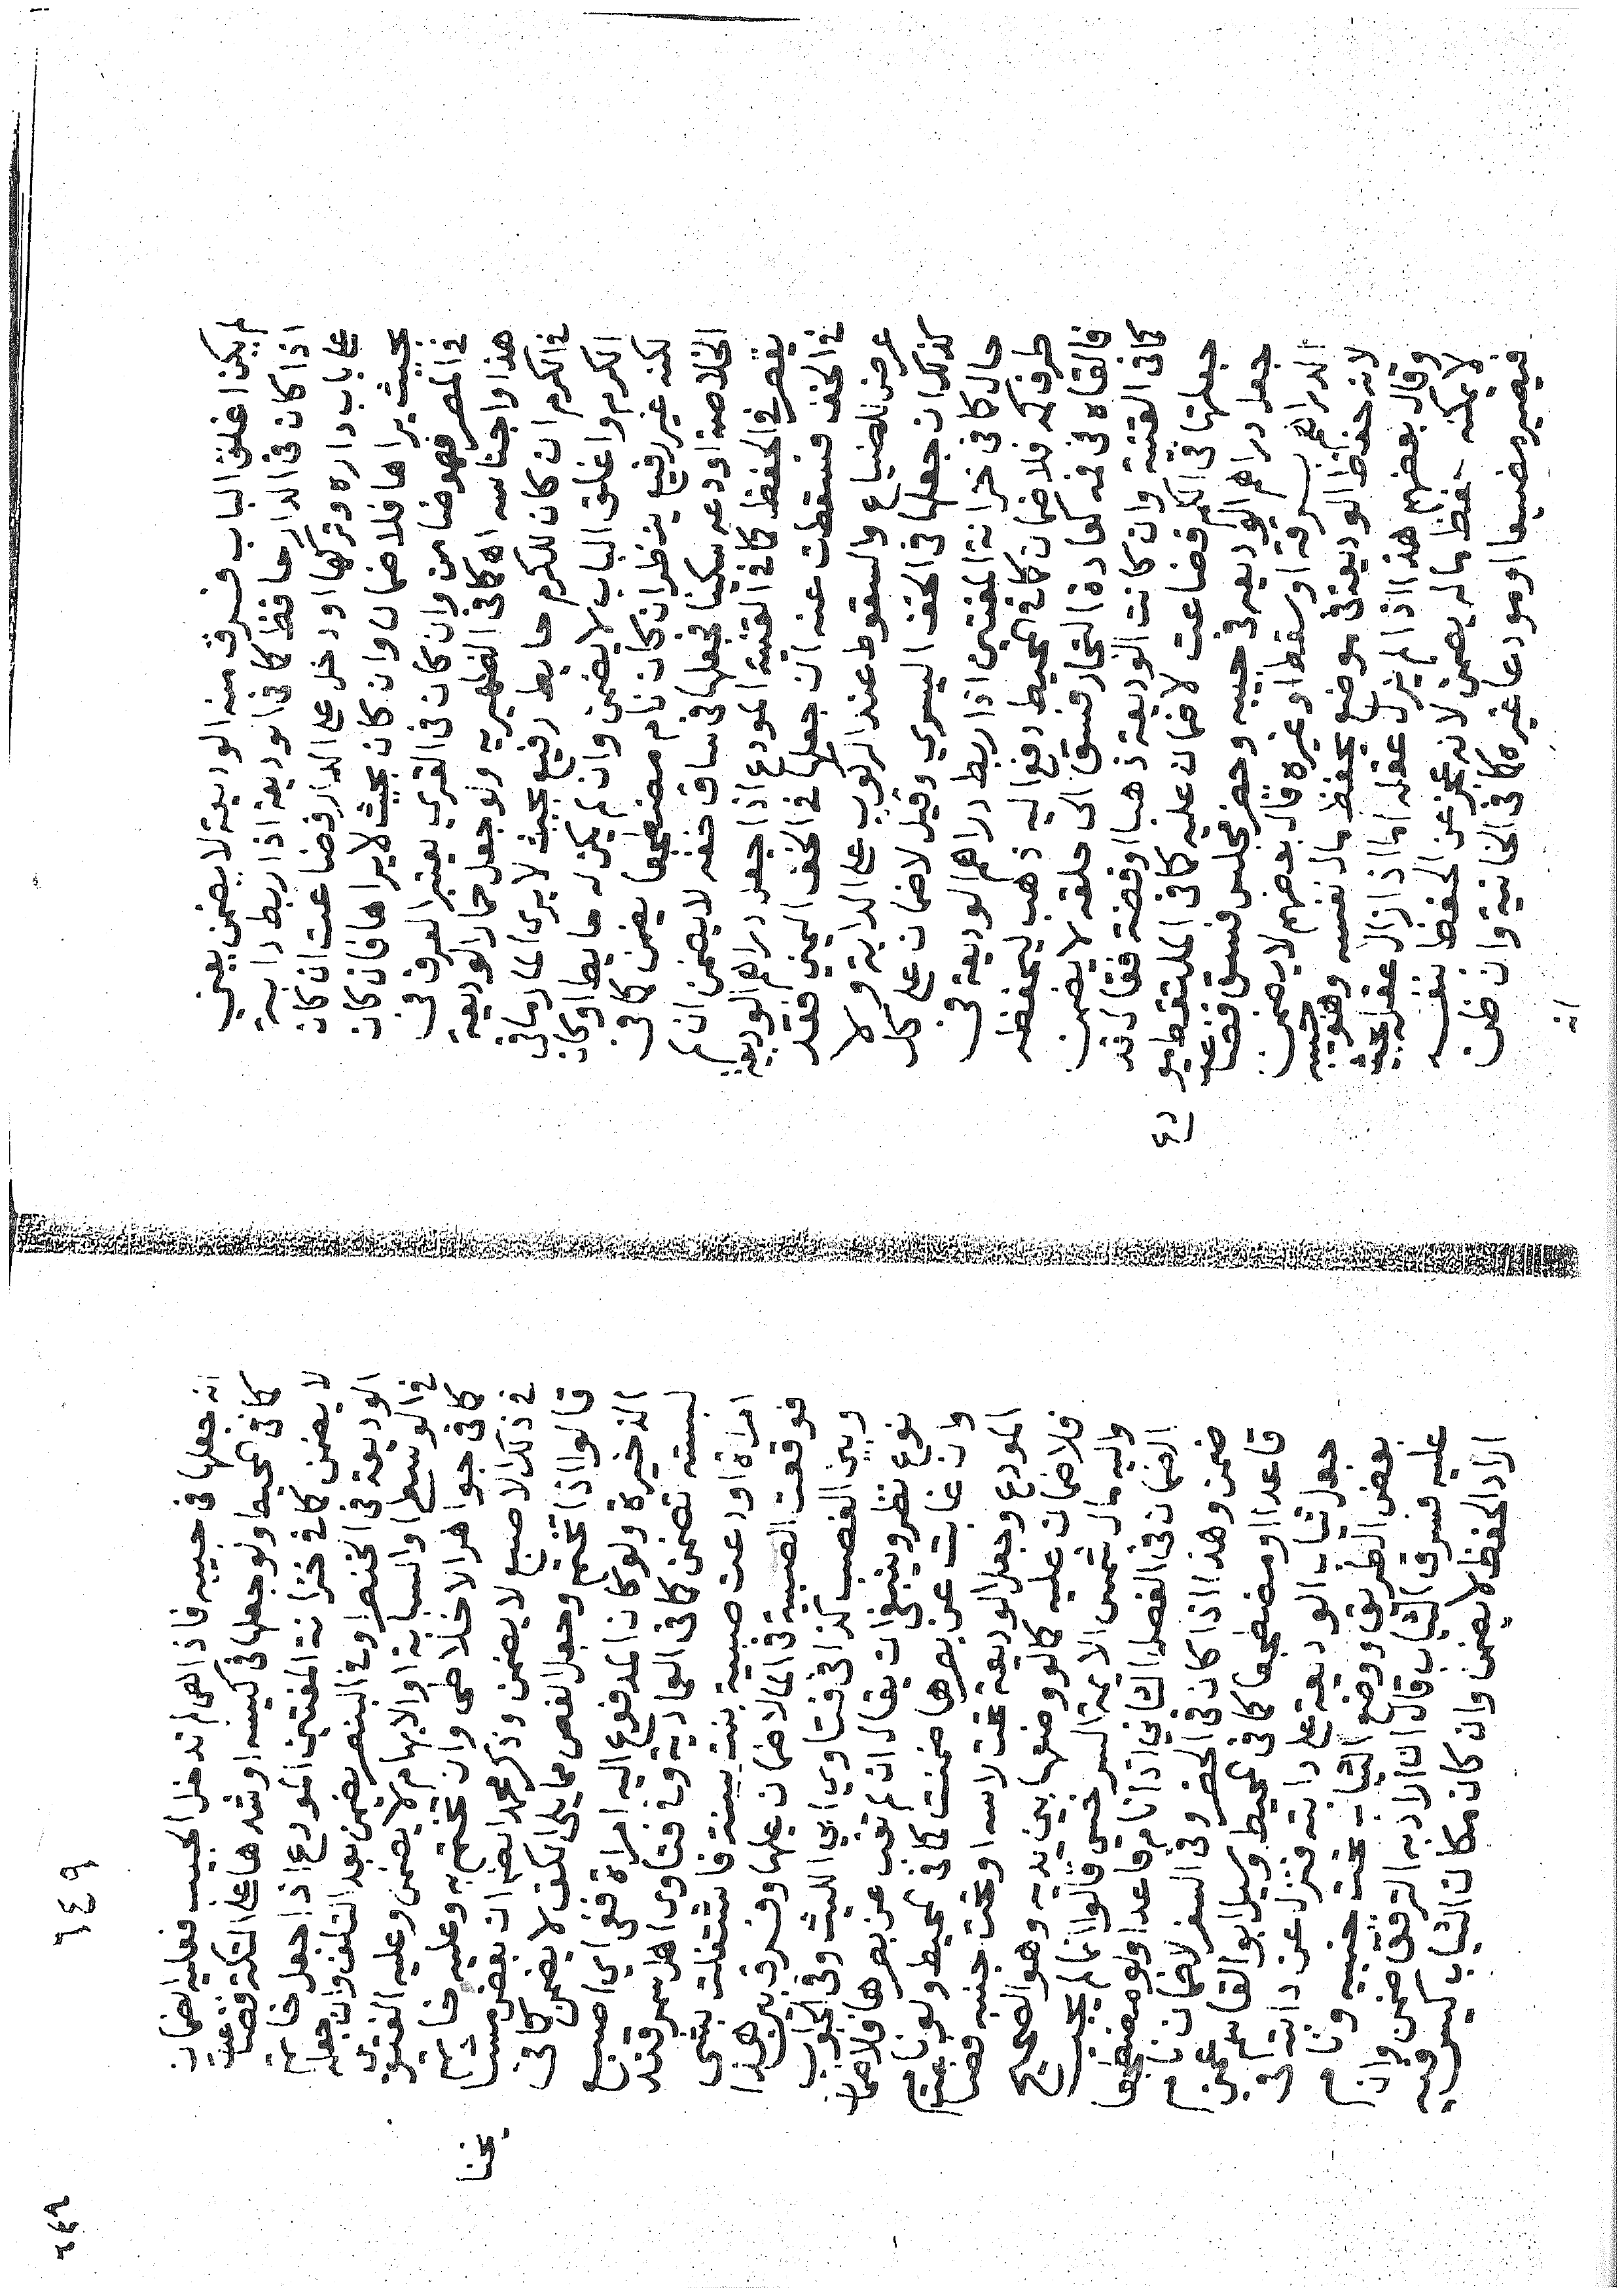 لم يكن اغلق الباب فسرق منه الوديعة لا يضمن يعني
اذا كان في الدار حافظ كما في الوديعة اذا ربط دابة
على باب داره وتركها ودخل على الدار فضاعت ان كان
بحيث يراها فلا ضمان وان كان بحيث لا يراها فان كان
في المصر فهو ضامن وان كان في القرى يعتبر العرف في
هذا واجناسه اه كما في الظهيرية ولو جعل حمار الوديعة
في الكرم ان كان للكرم حايط رفيع بحيث لا يرى المار ما في
الكرم واغلق الباب لا يضمن وان لم يكن له حايط او كان
لكنه غير رفيع ينظر ان كان نام مضطجعا يضمن كما في
الخلاصة اودعه سكينا فجعلها في ساق خفه لا يضمن ان لم
يقصر في الحفظ كما في القنية المودع اذا جعل دراهم الوديعة
في الخف فسقطت عنه ان جعلها في الخف اليمنى فقد
عرض للضياع والسقوط عند الركوب على الدابة ولا
كذلك ان جعلها في الخف اليسرى وقيل لا ضمان على كل
حال كما في خزانة المفتين اذا ربط دراهم الوديعة في
طرف كمه فلا ضمان كما في المحيط دفع اليه ذهب ليحفظه
فالقاه في فمه كعادة التجار فسبق الى حلقه لا يضمن
كما في القنية وان كانت الوديعة ذهبا او فضة فقال قد
جعلتها في الكم فضاعت لا ضمان عليه كما في الملتقط
جعل دراهم الوديعة في جيبه وحضر مجلس فسق فضاعت
الدراهم بسرقة او سقط او غيره قال بعضهم لا يضمن
لانه حفظ الوديعة في موضع يحفظ مال نفسه وهو جيبه
وقال بعضهم هذا اذا لم يزل عقله اما اذا زال عقله بحيث
لا يمكنه حفظ ماله يضمن لانه عجز عن الحفظ بنفسه
فيصير مضيعا او مودعا غيره كما في الخانية وان ظن
انه
انه جعلها في جيبه فاذا هي لم تدخل الجيب فعليه الضمان
كما في المحيط ولو جعلها في كيسه او شدها على التكة فضاعت
لا يضمن كما في خزانة المفتين المودع اذا جعل خاتم
الوديعة في الخنصر او في البنصر يضمن بعد التلف وان جعله
في الوسطى او السبابة او الابهام لا يضمن وعليه الفتوى
كما في جواهر الاخلاطى وان تختم به وعليه خاتم
في ذكر الاصبع لا يضمن وذكر محمد ايضا ان بعض مشايخنا
قالوا اذا تختم وجعل الفص مما يلى الكف لا يضمن كما في
الذخيرة ولو كان المدفوع اليه امراة ففى اي اصبع
لبسته تضمن كما في العمادية وفي فتاوى اهل سمرقند
امراة اودعت صبية بنت سنة فاشتغلت بشى
فوقعت الصبية في الما لا ضمان عليها وفرق بين هذا
وبين الغصب كذا في فتاوى ابي الليث وفي الجواب
نوع نظر وينبغى ان يقال ان لم تغب عن بصرها فلا ضمان
وان غابت عن بصرها ضمنت كما في المحيط ولو نام
المودع وجعل الوديعة تحت راسه او تحت جنبه فضاعت
فلا ضمان عليه كما لو وضعها بين يديه وهو الصحيح
واليه مال شمس الايمة السرخسى قالوا انما لم يجب
الضمان في الفصل الثاني اذا نام قاعدا ولو مضطجعا
ضمن وهذا اذا كان في الحضر وفي السفر لا ضمان نام
قاعدا او مضطجعا كما في المحيط وسيل ابو القاسم عمن
جعل ثياب الوديعة على دابته فنزل عن دابته في
بعض الطريق ووضع الثياب تحت جنبيه ونام
عليه فسرق الثياب قال ان اراد به الترفق ضمن وان
اراد الحفظ لا يضمن وان كان مكان الثياب كيس فيه
٦٤٩
٦٤٩